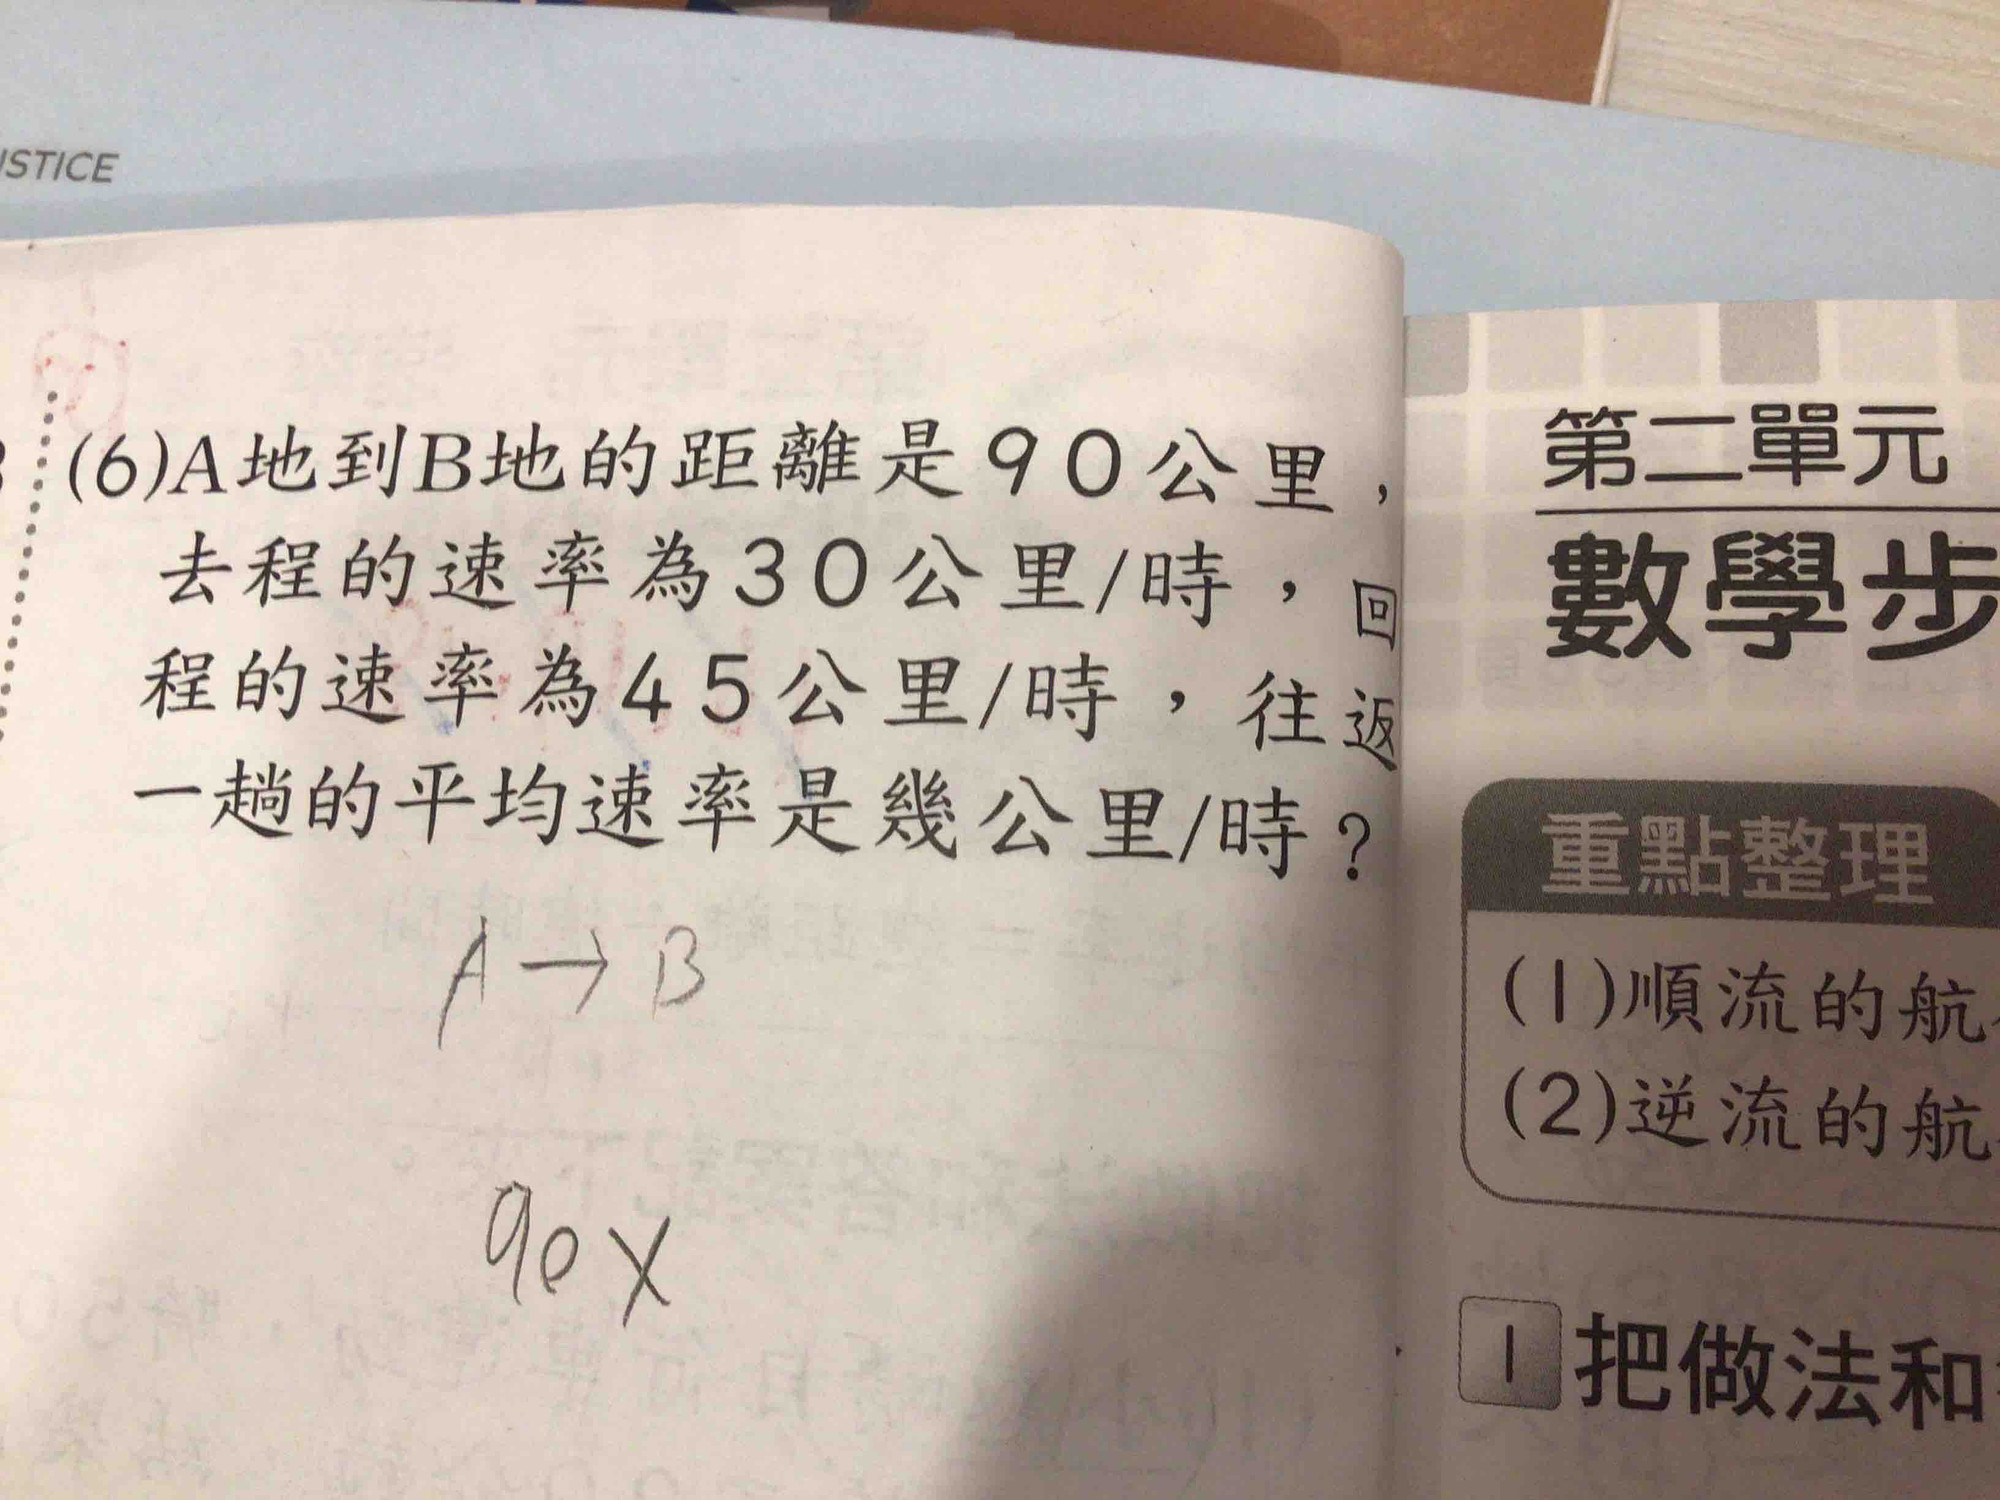 ISTICE
(6)A地到B地的距離是90公里，
去程的速率為30公里/時，回
程的速率為45公里/時，往返
一趟的平均速率是幾公里/時？
A→B
90X
第二單元
數學步
重點整理
(1)順流的航
(2)逆流的航
1 把做法和